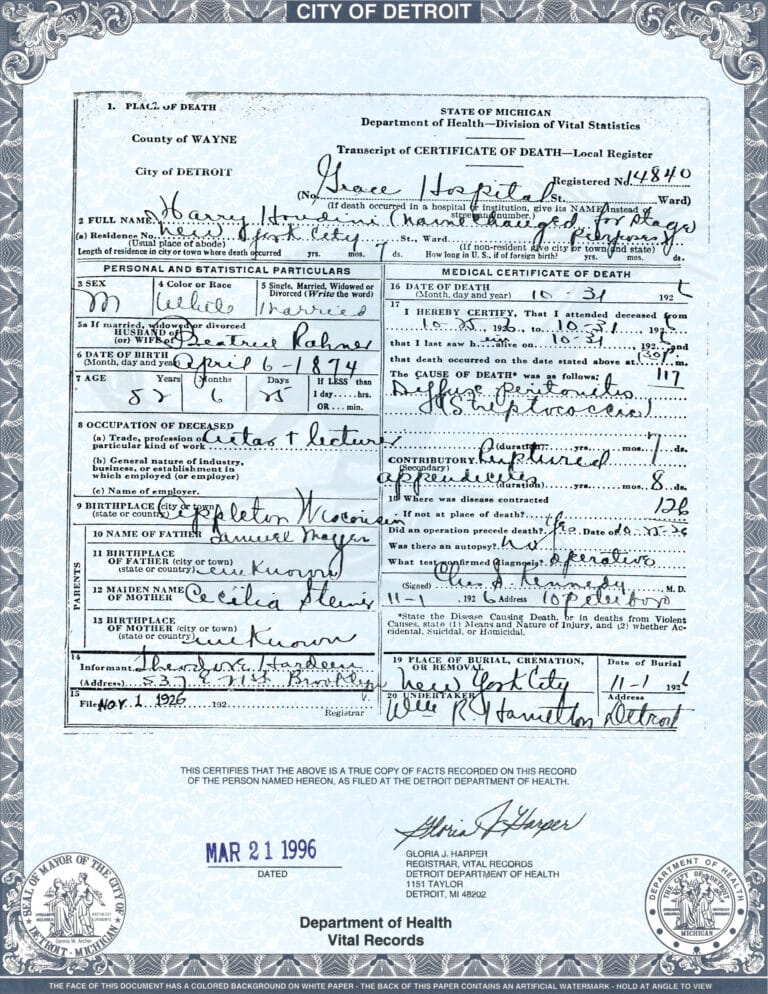 CITY OF DETROIT
1. PLACE OF DEATH
County of WAYNE
City of DETROIT
STATE OF MICHIGAN
Department of Health—Division of Vital Statistics
Transcript of CERTIFICATE OF DEATH—Local Register
Registered No. 14840
(No. Grace Hospital St. Ward)
(If death occurred in a hospital or institution, give its NAME instead of street and number.)
2 FULL NAME Harry Houdini (name changed for stage purposes)
(a) Residence No. New York City St., Ward
(Usual place of abode) (If non-resident give city or town and state)
Length of residence in city or town where death occurred yrs. mos. 7 ds. How long in U. S., if of foreign birth? yrs. mos. ds.
PERSONAL AND STATISTICAL PARTICULARS
3 SEX 4 Color or Race 5 Single, Married, Widowed or Divorced (Write the word)
M White Married
5a If married, widowed or divorced
HUSBAND of
(or) WIFE of Beatrice Rahner
6 DATE OF BIRTH
(Month, day and year) April 6-1874
7 AGE Years Months Days If LESS than
1 day....hrs.
OR... min.
52 6 25
8 OCCUPATION OF DECEASED
(a) Trade, profession or
particular kind of work Actor + lecturer
(b) General nature of industry,
business, or establishment in
which employed (or employer)
(c) Name of employer.
9 BIRTHPLACE (city or town)
(state or country) Appleton Wisconsin
PARENTS
10 NAME OF FATHER Samuel
11 BIRTHPLACE
OF FATHER (city or town)
(state or country) Unknown
12 MAIDEN NAME
OF MOTHER Cecilia
13 BIRTHPLACE
OF MOTHER (city or town)
(state or country) Unknown
14
Informant Theodore Hardeen
(Address) 537 E 21st Brooklyn
15
Filed NOV. 1 1926 192
Registrar
MEDICAL CERTIFICATE OF DEATH
16 DATE OF DEATH
(Month, day and year) 10-31 1926
17
I HEREBY CERTIFY, That I attended deceased from
10-25, 1926, to 10-31, 1926
that I last saw him alive on 10-31 1926, and
that death occurred on the date stated above at 1:30 P.m.
The CAUSE OF DEATH* was as follows: 117
Diffuse peritonitis
(Streptococcic)
(duration) yrs. mos. 7 ds.
CONTRIBUTORY Ruptured
(Secondary)
appendicitis (duration) yrs. mos. 8 ds.
18 Where was disease contracted 126
If not at place of death?
Did an operation precede death? Yes Date of 10-25-26
Was there an autopsy? No
What test confirmed diagnosis? Operative
(Signed) Chas S. Kennedy M. D.
11-1, 1926 Address 10 Peterboro
*State the Disease Causing Death, or in deaths from Violent
Causes, state (1) Means and Nature of Injury, and (2) whether Ac-
cidental, Suicidal, or Homicidal.
19 PLACE OF BURIAL, CREMATION, OR REMOVAL Date of Burial
New York City 11-1 1926
20 UNDERTAKER Address
Wm R. Hamilton Detroit
THIS CERTIFIES THAT THE ABOVE IS A TRUE COPY OF FACTS RECORDED ON THIS RECORD
OF THE PERSON NAMED HEREON, AS FILED AT THE DETROIT DEPARTMENT OF HEALTH.
MAR 21 1996
DATED
Gloria J. Harper
GLORIA J. HARPER
REGISTRAR, VITAL RECORDS
DETROIT DEPARTMENT OF HEALTH
1151 TAYLOR
DETROIT, MI 48202
SEAL OF MAYOR OF THE CITY OF DETROIT - MICHIGAN
Dennis W. Archer
DEPARTMENT OF HEALTH
THE CITY OF DETROIT
MICHIGAN
Department of Health
Vital Records
THE FACE OF THIS DOCUMENT HAS A COLORED BACKGROUND ON WHITE PAPER - THE BACK OF THIS PAPER CONTAINS AN ARTIFICIAL WATERMARK - HOLD AT ANGLE TO VIEW